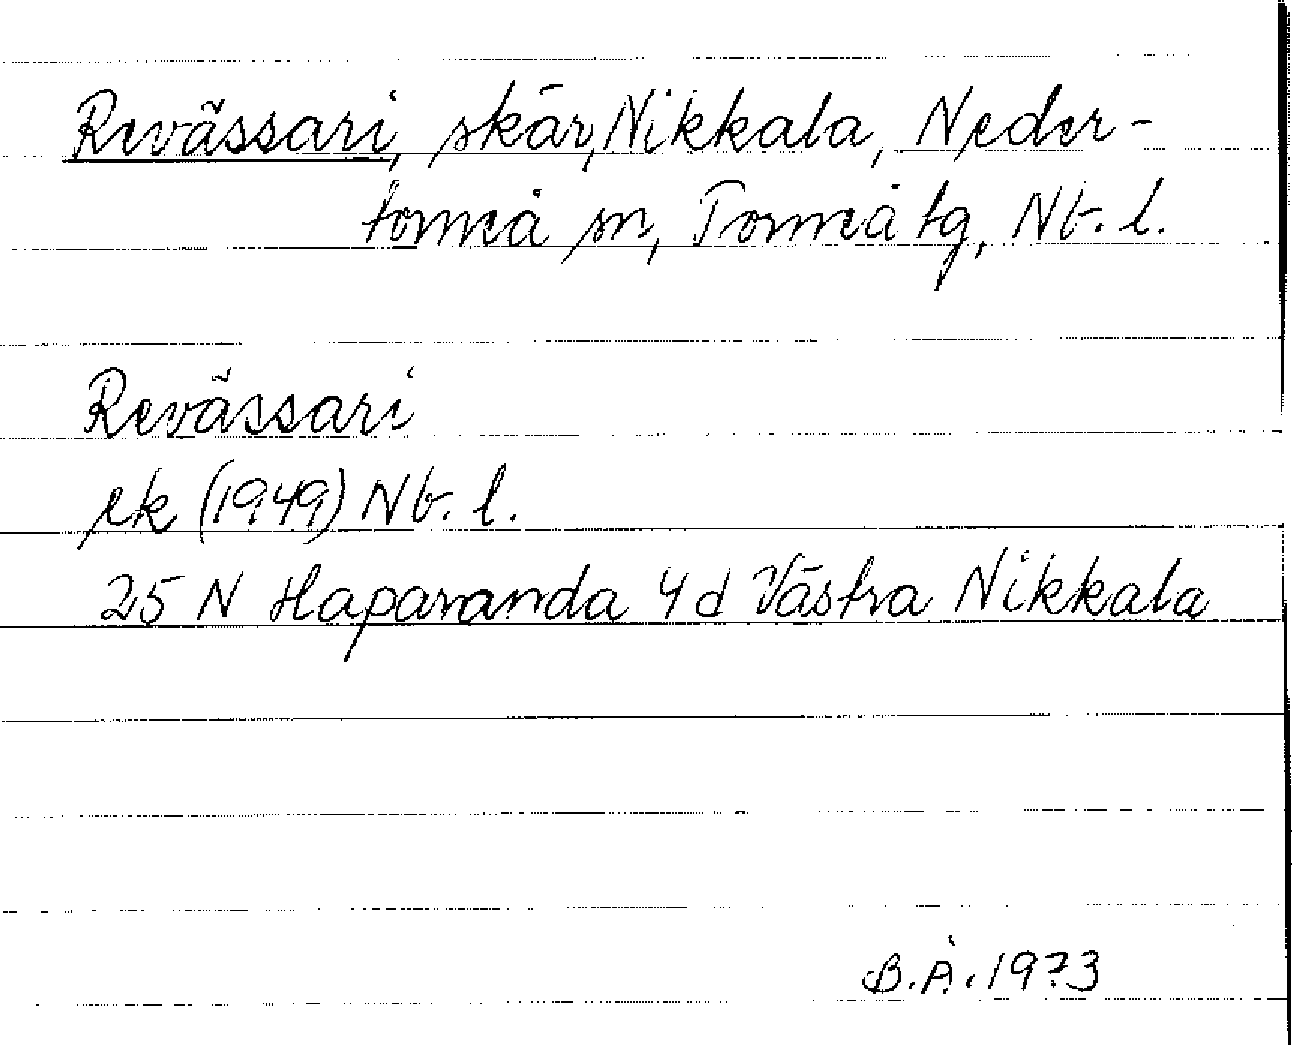 Revässari, skär, Nikkala, Neder-
torneå sn, Torneå tg, Nb. l.
Revässari
ek (1949) Nb. l.
25 N Haparanda 4d Västra Nikkala
B.Å. 1973